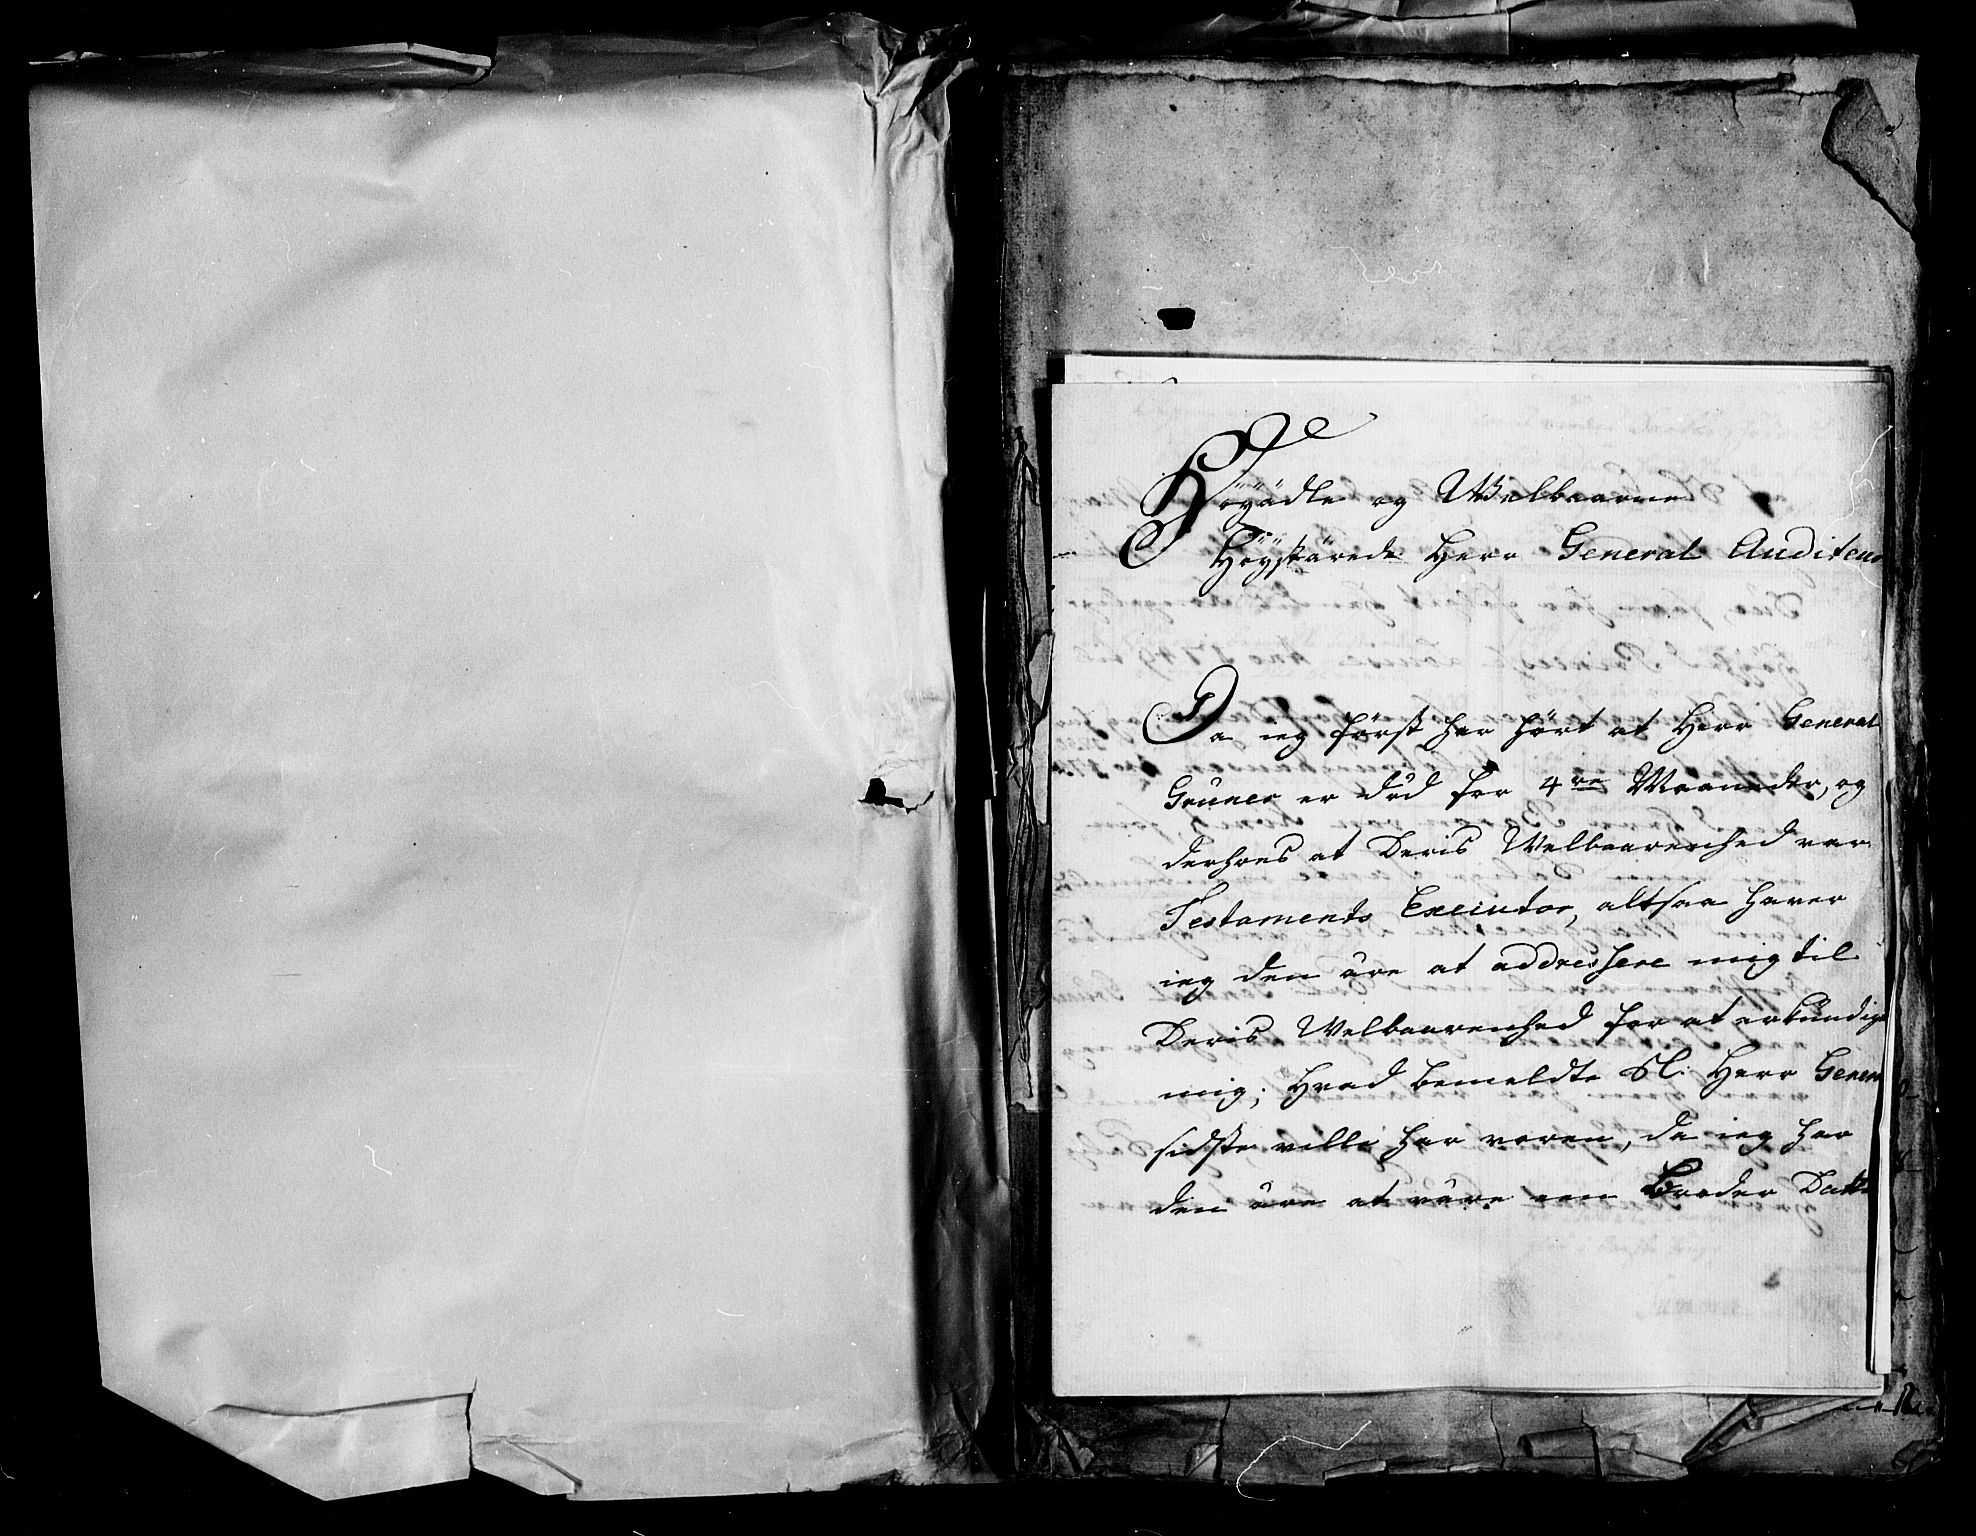 Høyädle og Welbaarne
Høystärede Herr General Auditeur
Da ieg først har hört at Herr General
Grüner er död for 4re Maaneder, og
derhos at Deris Welbaarenhed var
Testaments Executor, altsaa haver
ieg den äre at addressere mig til
Deris Welbaarenhed for at erkündige
mig, hvad bemeldte Sl. Herr General
sidste ville har varen, da ieg har
den äre at väre een Broder Datter